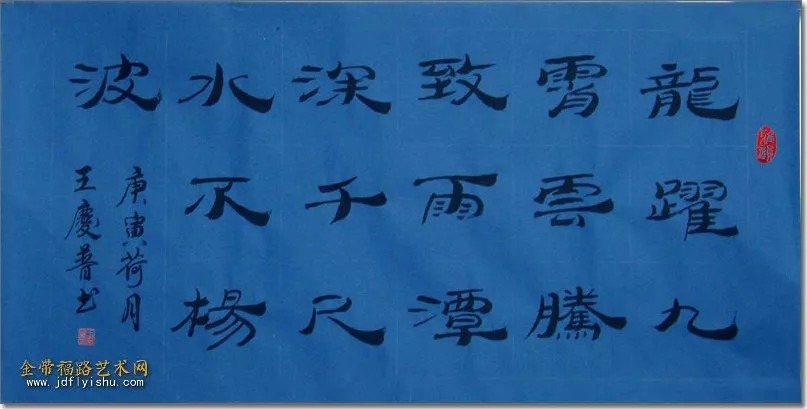 龍躍九
霄雲騰
致雨潭
深千尺
水不楊
波
庚寅荷月
王慶普书
金带福路艺术网
www.jdflyishu.com